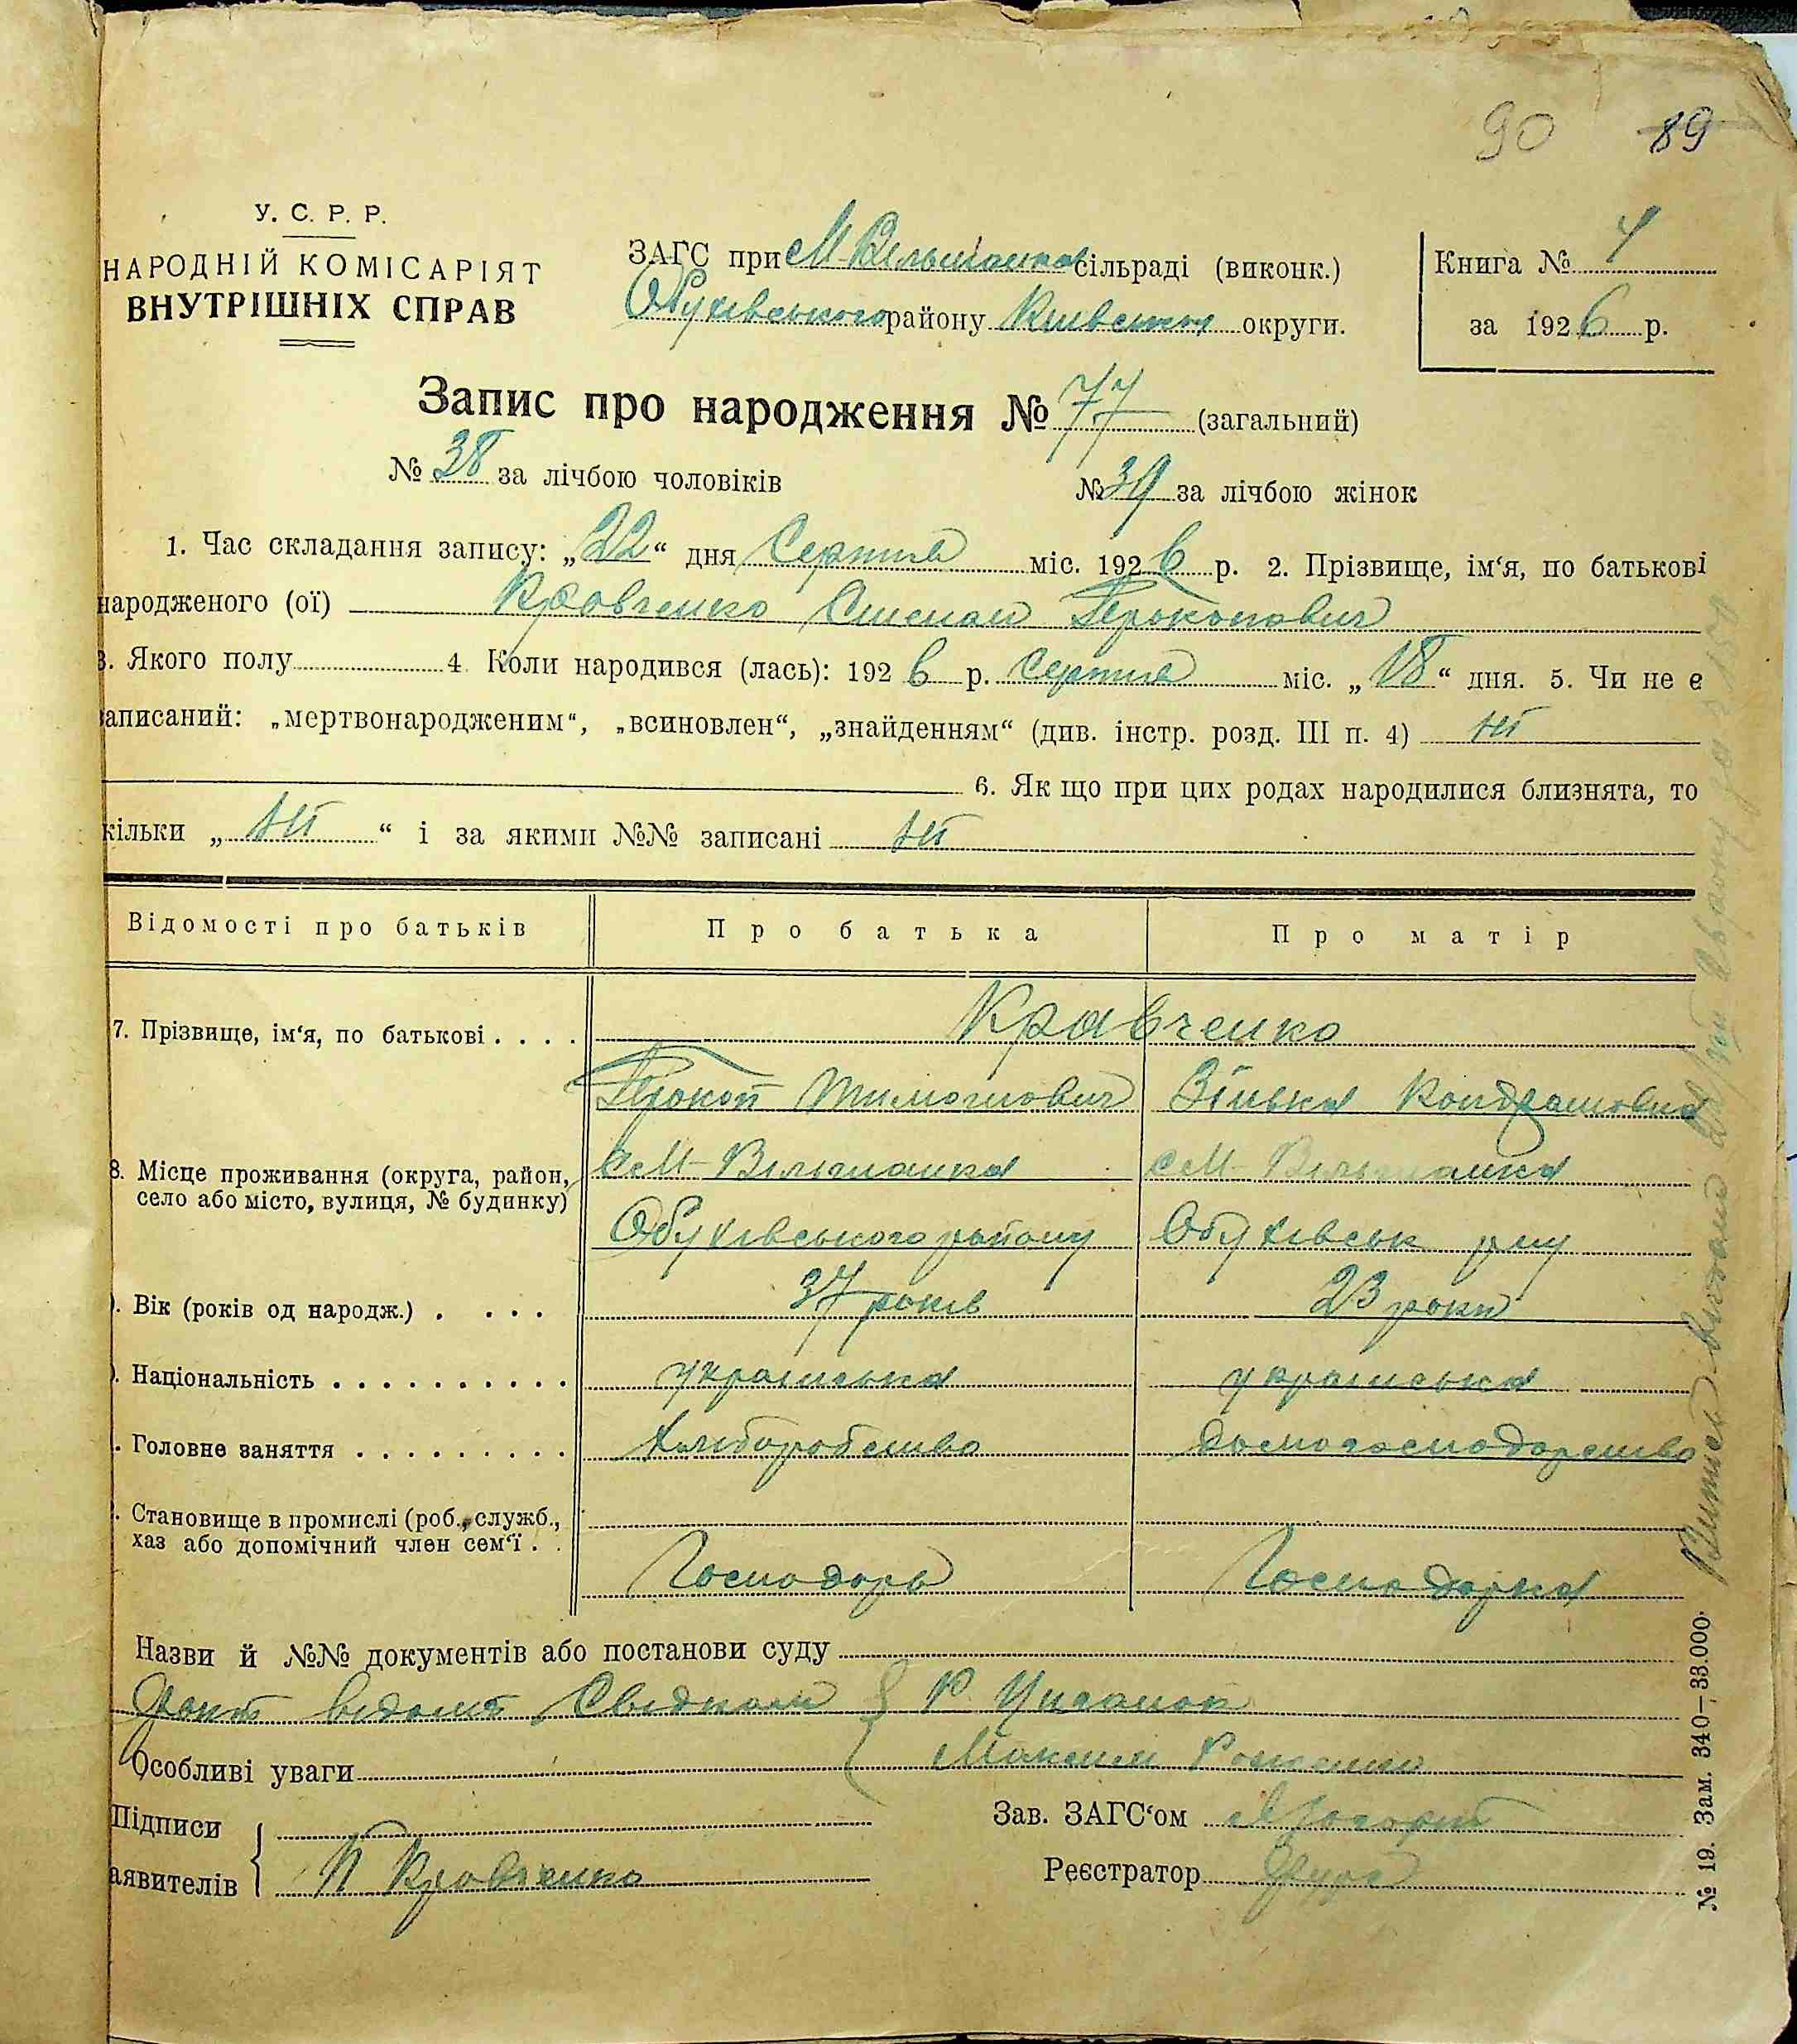 90 89
У. С. Р. Р.
НАРОДНІЙ КОМІСАРІЯТ
ВНУТРІШНІХ СПРАВ
ЗАГС при М Вільшанков сільраді (виконк.)
Обухівського району Київської округи.
Книга №
за 1926 р.
Запис про народження № 77 (загальний)
№ 38 за лічбою чоловіків № 39 за лічбою жінок
1. Час складання запису: „22“ дня Серпня міс. 1926 р. 2. Прізвище, ім‘я, по батькові
народженого (ої) Кравченко Степан Прокопович
3. Якого полу 4. Коли народився (лась): 1926 р. Серпня міс. „18“ дня. 5. Чи не є
записаний: „мертвонародженим“, „всиновлен“, „знайденням“ (див. інстр. розд. III п. 4) ні
6. Як що при цих родах народилися близнята, то
кільки „ні“ і за якими №№ записані ні
Відомості про батьків Про батька Про матір
7. Прізвище, ім‘я, по батькові . . . . Кравченко
Прокоп Тимошович Зінька Кондратовна
8. Місце проживання (округа, район, село або місто, вулиця, № будинку)
с М-Вільшанка с М-Вільшанка
Обухівського району Обухівськ рну
. Вік (років од народж.) . . . . 37 років 23 роки
. Національність . . . . . . . . . . українська українська
. Головне заняття . . . . . . . . . Хліборобство домогосподарство
. Становище в промислі (роб., служб.,
хаз або допомічний член сем‘ї . .
Господарь Господарка
Назви й №№ документів або постанови суду
Свідками
Особливі уваги Максим
Підписи
аявителів П Кравченко
Зав. ЗАГС‘ом
Реєстратор
№ 19. Зам. 340—33.000.